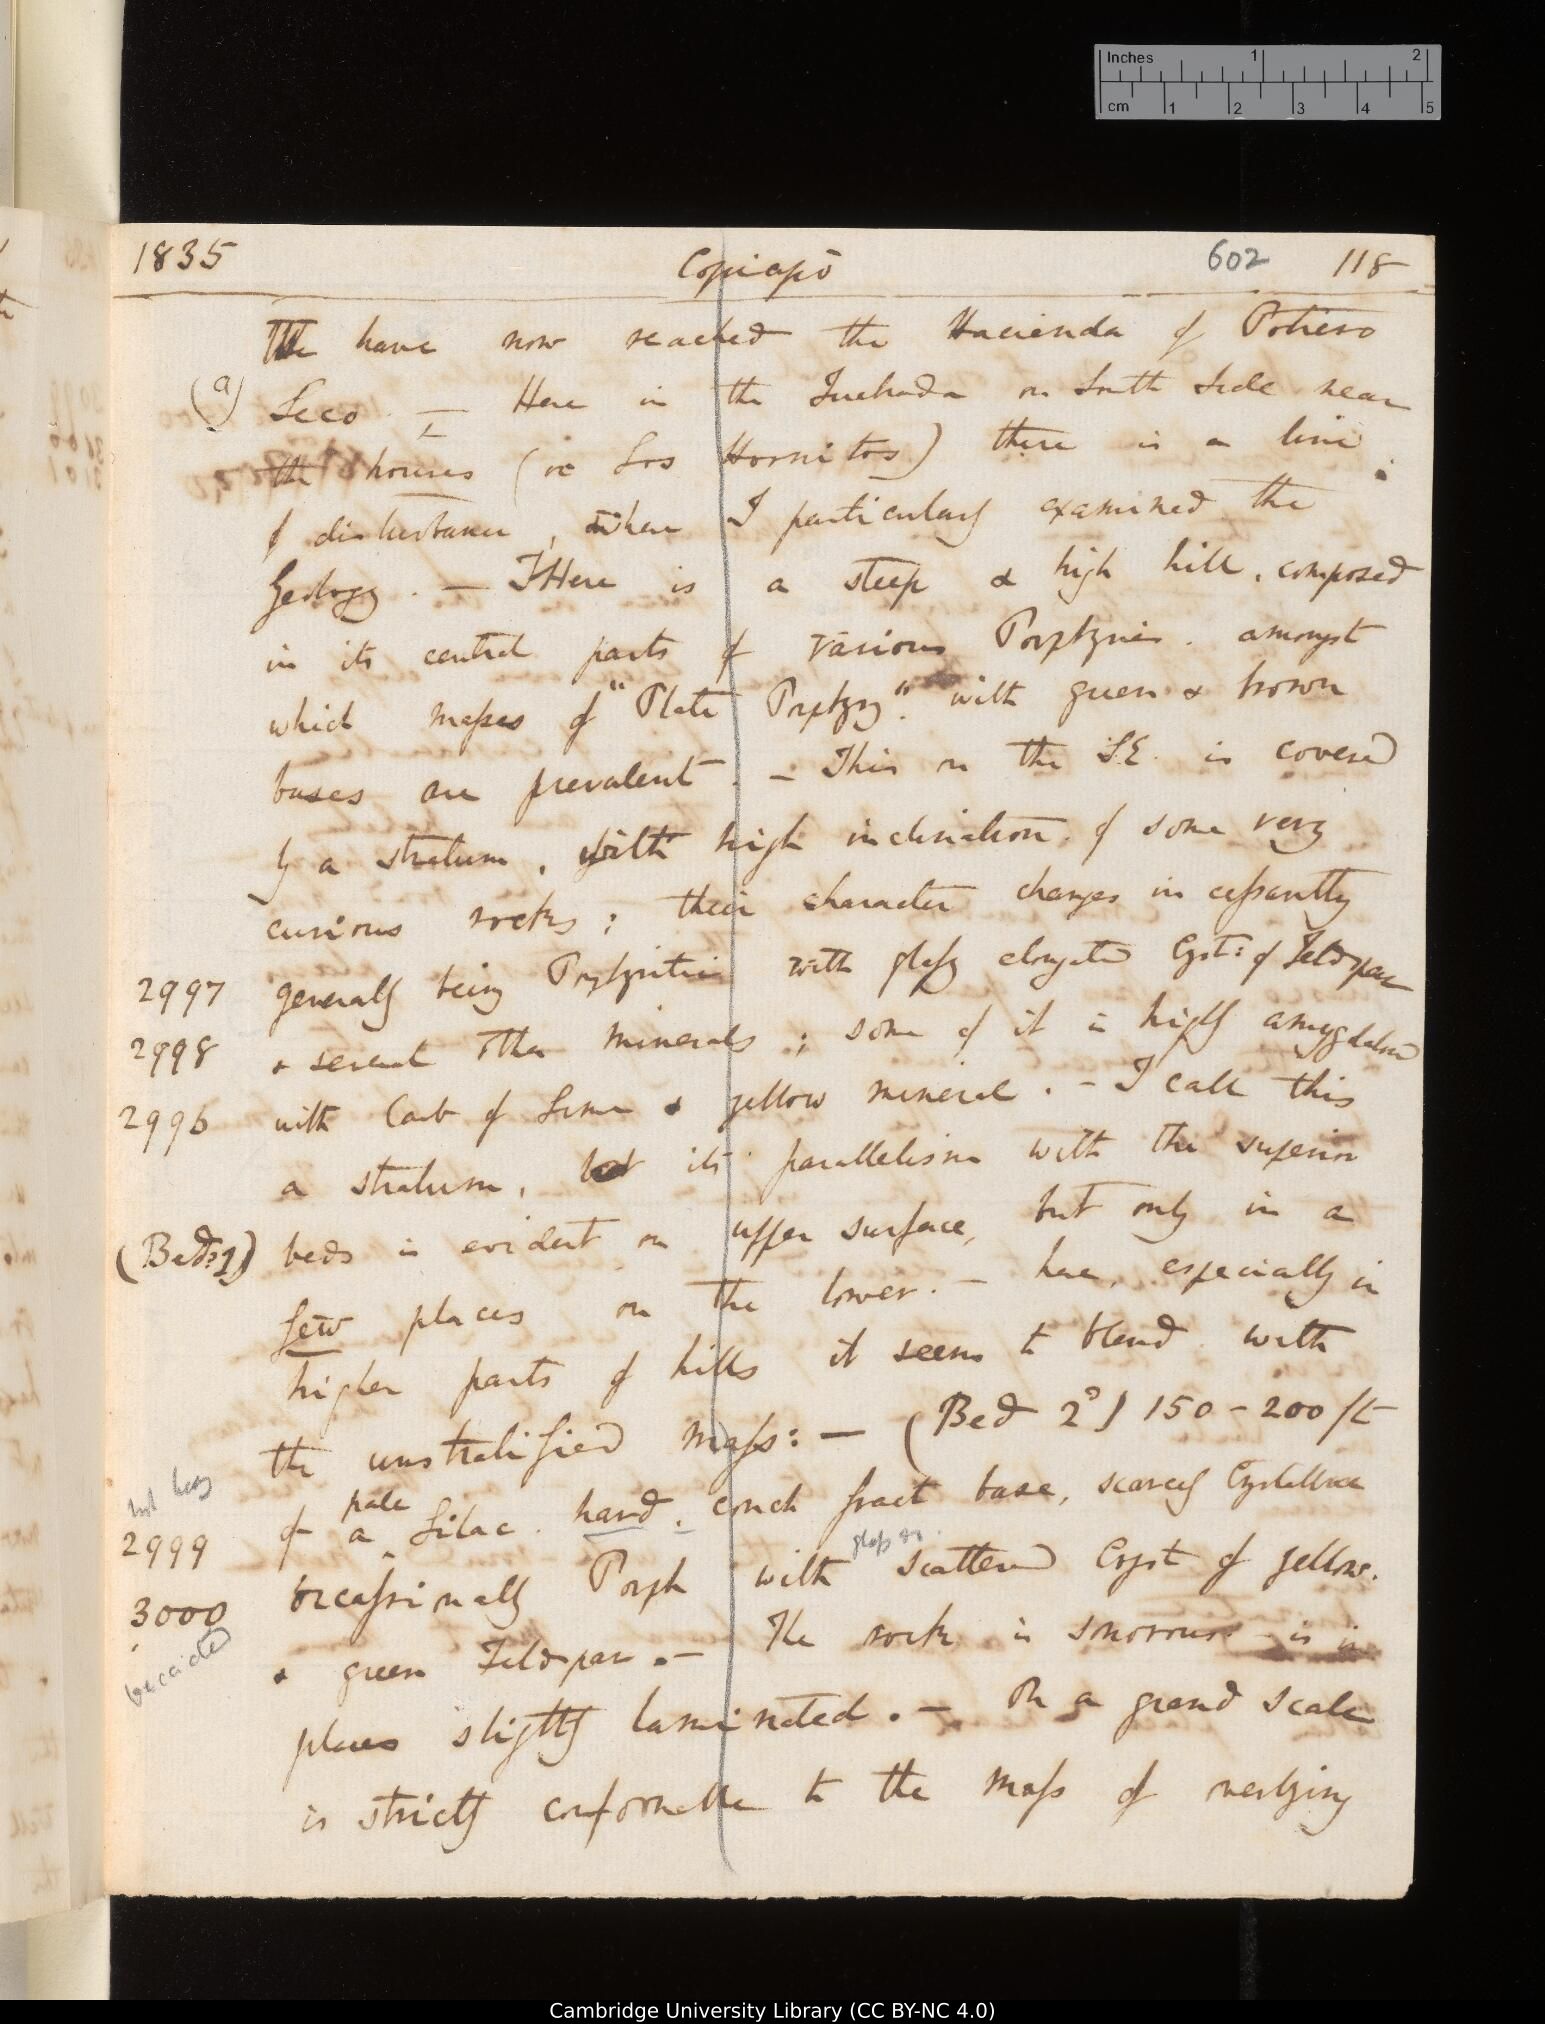 1835 Copiapò 602 118
We have now reached the Hacienda of Potrero
(a) Seco. — Here in the Quebrada on South Side near
the houses (ie Los Hornitos) there is a line
of disturbance, where I particularly examined the
Geology. — Here is a steep & high hill, composed
in its central parts of various Porphyries. amongst
which masses of "Plate Porphyry". with green & brown
bases are prevalent. — This on the S.E. is covered
by a stratum, with high inclination. of some very
curious rocks; their character changes incessantly
2997 generally being Porphyritic with glassy elongated Cryst: of Feldspar
2998 & several other minerals; some of it is highly amygdaloid
2996 with Carb of Lime & yellow mineral. — I call this
a stratum, but its parallelism with the superior
(Bed: 1) beds is evident on upper surface, but only in a
few places on the lower. — here, especially in
higher parts of hills it seems to blend with
the unstratified mass: — (Bed 2d) 150-200 ft
pale
2999 of a Lilac. hard. conch fract base, scarcely Crystalline
glassy
3000 occassionally Porph with scattered Cryst of yellow.
brecciated & green Feldspar. — The rock is sonorous: is in
places slightly laminated. — On a grand scale
is strictly conformable to the mass of overlying
Inches 1 2
cm 1 2 3 4 5
Cambridge University Library (CC BY-NC 4.0)